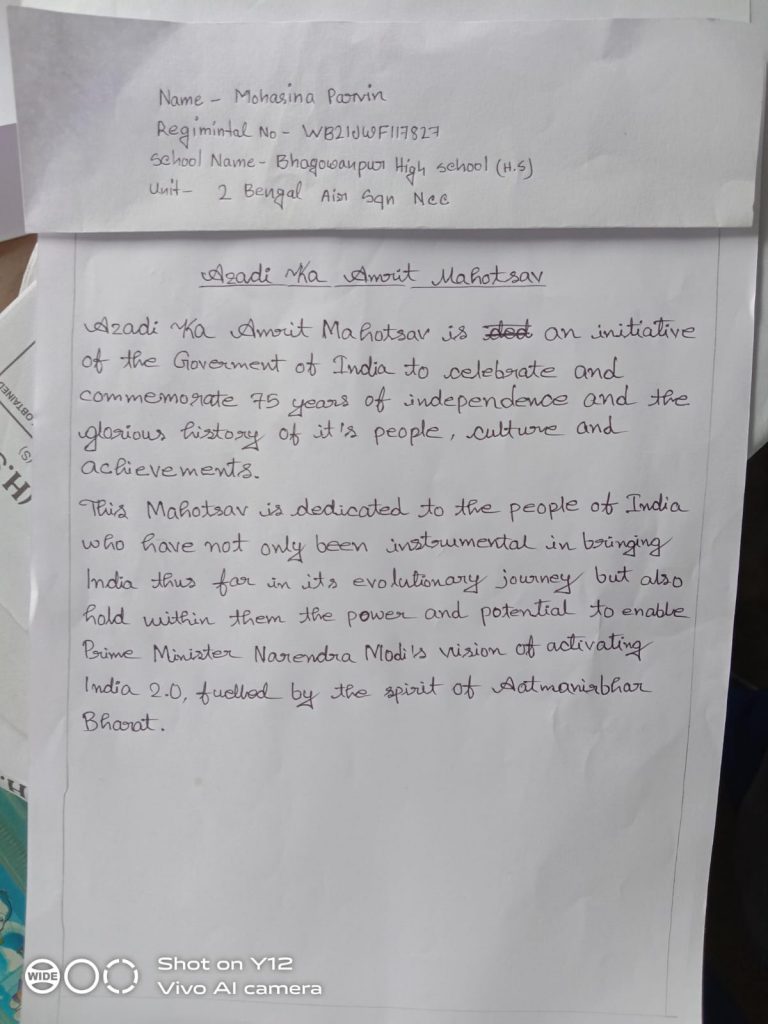 Name - Mohasina Parvin
Regimintal No - WB21JWF117827
School Name - Bhagowanpur High school (H.S)
Unit - 2 Bengal Air Sqn Ncc
Azadi Ka Amrit Mahotsav
Azadi Ka Amrit Mahotsav is an initiative
of the Goverment of India to celebrate and
commemorate 75 years of independence and the
glorious history of it's people, culture and
achievements.
This Mahotsav is dedicated to the people of India
who have not only been instrumental in bringing
India thus far in its evolutionary journey but also
hold within them the power and potential to enable
Prime Minister Narendra Modi's vision of activating
India 2.0, fuelled by the spirit of Aatmanirbhar
Bharat.
OBTAINED
(S)
(H.S
H.
WIDE
Shot on Y12
Vivo AI camera